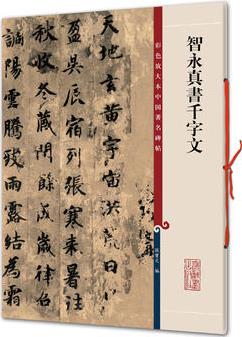 智永真書千字文
彩色放大本中國著名碑帖
孫寶文 編
天地玄黃宇宙洪荒日月
盈昃辰宿列張寒来暑
秋收冬藏閏餘成歲律呂
調陽雲騰致雨露結為霜